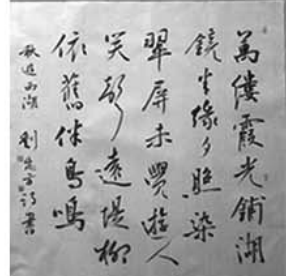 萬縷霞光鋪湖
鏡半緣夕照染
翠屏未覺遊人
笑聲遠堤柳
依舊伴鳥鳴
秋遊西湖 劉
詩書